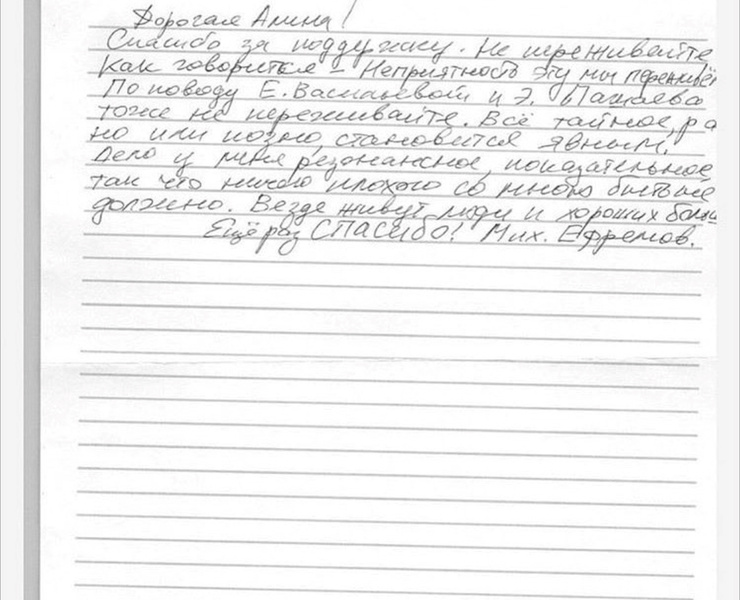 Дорогая Алина!
Спасибо за поддержку. Не переживайте,
Как говорится – Неприятность эту мы переживём
По поводу Е. Васильевой и Э. Пашаева
тоже не переживайте. Всё тайное, ра
но или поздно, становится явным.
Дело у меня резонансное, показательное
так что ничего плохого со мной быть не
должно. Везде живут люди и хороших больш
Ещё раз СПАСИБО! Мих. Ефремов.